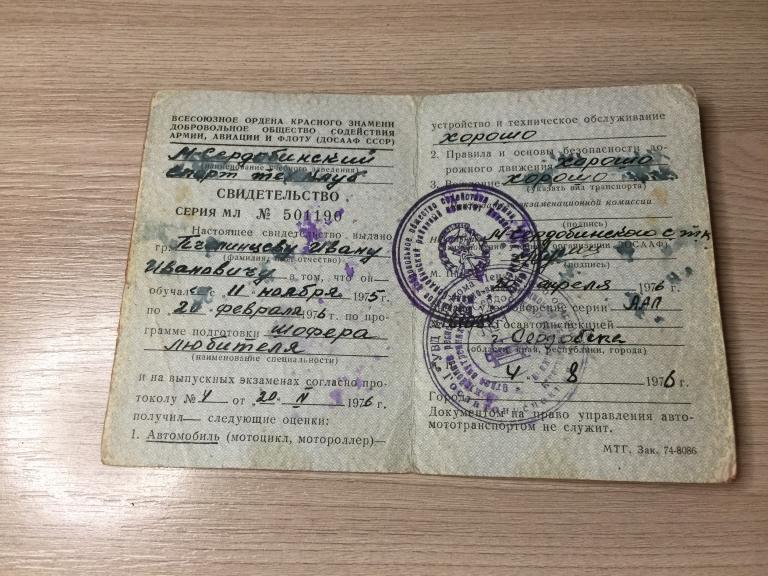 ВСЕСОЮЗНОЕ ОРДЕНА КРАСНОГО ЗНАМЕНИ
ДОБРОВОЛЬНОЕ ОБЩЕСТВО СОДЕЙСТВИЯ
АРМИИ, АВИАЦИИ И ФЛОТУ (ДОСААФ СССР)
М-Сердобинский
(наименование учебного заведения)
Спорт тех клуб
СВИДЕТЕЛЬСТВО
СЕРИЯ МЛ № 501190
Настоящее свидетельство выдано
гр. Ивану
(фамилия, имя, отчество)
Ивановичу в том, что он
обучался с 11 ноября 1975 г.
по 20 февраля 1976 г. по про-
грамме подготовки шофера
любителя
(наименование специальности)
и на выпускных экзаменах согласно про-
токолу № 4 от 20 II 1976 г.
получил следующие оценки:
1. Автомобиль (мотоцикл, мотороллер)—
устройство и техническое обслуживание
хорошо
2. Правила и основы безопасности до-
рожного движения хорошо
3. Вождение хорошо
(указать вид транспорта)
экзаменационной комиссии
(подпись)
М-Сердобинского с.т.к
организации ДОСААФ)
(подпись)
М. П. апреля 1976 г.
удостоверение серии ААП
Госавтоинспекцией
г. Сердобска
(области, края, республики, города)
4. 8 1976 г.
Город
Документом на право управления авто-
мототранспортом не служит.
МТГ. Зак. 74-8086